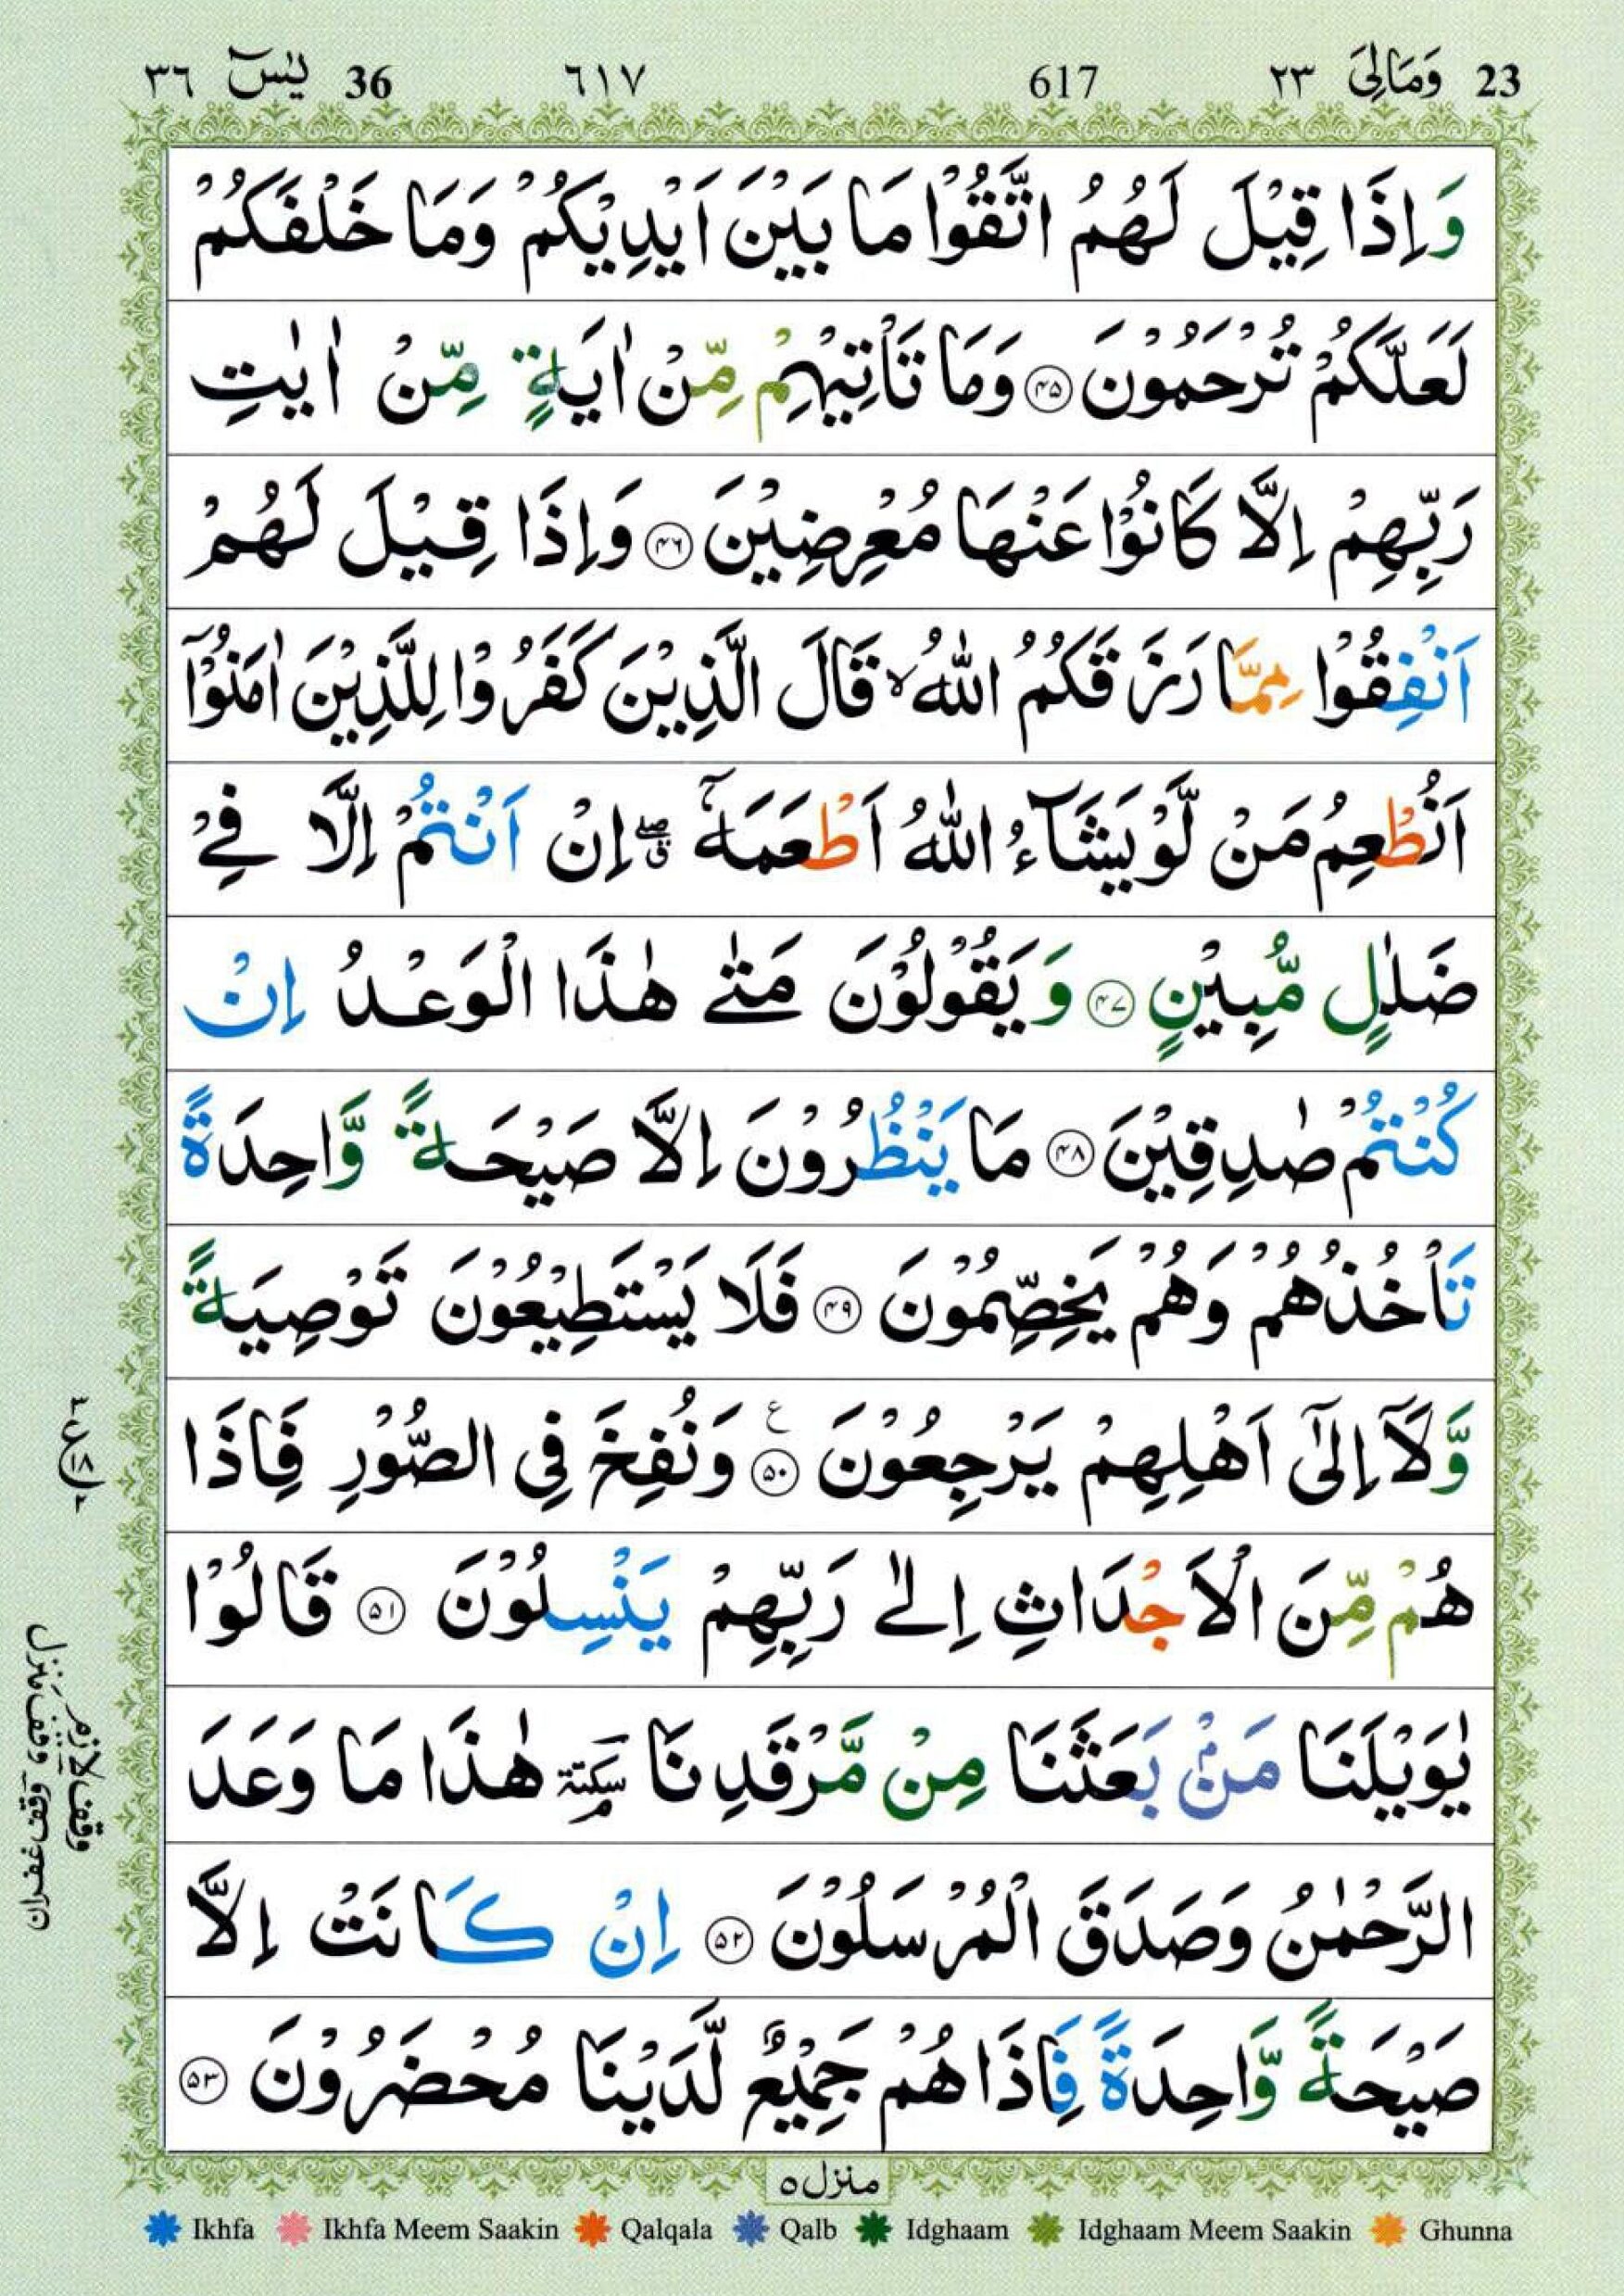 23 وَمَالِیَ ٢٣ 617 ٦١٧ 36 يٰسٓ ٣٦
وَاِذَا قِيْلَ لَهُمُ اتَّقُوْا مَا بَيْنَ اَيْدِيْكُمْ وَمَا خَلْفَكُمْ
لَعَلَّكُمْ تُرْحَمُوْنَ ۴۵ وَمَا تَاْتِيْهِمْ مِّنْ اٰيَةٍ مِّنْ اٰيٰتِ
رَبِّهِمْ اِلَّا كَانُوْا عَنْهَا مُعْرِضِيْنَ ۴۶ وَاِذَا قِيْلَ لَهُمْ
اَنْفِقُوْا مِمَّا رَزَقَكُمُ اللّٰهُ ۙ قَالَ الَّذِيْنَ كَفَرُوْا لِلَّذِيْنَ اٰمَنُوْٓا
اَنُطْعِمُ مَنْ لَّوْ يَشَآءُ اللّٰهُ اَطْعَمَهٗٓ ۖق اِنْ اَنْتُمْ اِلَّا فِيْ
ضَلٰلٍ مُّبِيْنٍ ۴۷ وَيَقُوْلُوْنَ مَتٰى هٰذَا الْوَعْدُ اِنْ
كُنْتُمْ صٰدِقِيْنَ ۴۸ مَا يَنْظُرُوْنَ اِلَّا صَيْحَةً وَّاحِدَةً
تَاْخُذُهُمْ وَهُمْ يَخِصِّمُوْنَ ۴۹ فَلَا يَسْتَطِيْعُوْنَ تَوْصِيَةً
وَّلَآ اِلٰٓى اَهْلِهِمْ يَرْجِعُوْنَ ۵۰ ع وَنُفِخَ فِى الصُّوْرِ فَاِذَا
هُمْ مِّنَ الْاَجْدَاثِ اِلٰى رَبِّهِمْ يَنْسِلُوْنَ ۵۱ قَالُوْا
يٰوَيْلَنَا مَنْۢ بَعَثَنَا مِنْ مَّرْقَدِنَا سكتة هٰذَا مَا وَعَدَ
الرَّحْمٰنُ وَصَدَقَ الْمُرْسَلُوْنَ ۵۲ اِنْ كَانَتْ اِلَّا
صَيْحَةً وَّاحِدَةً فَاِذَا هُمْ جَمِيْعٌ لَّدَيْنَا مُحْضَرُوْنَ ۵۳
وقف لازم
وقف منزل
وقف غفران
منزل ۵
Ikhfa Ikhfa Meem Saakin Qalqala Qalb Idghaam Idghaam Meem Saakin Ghunna